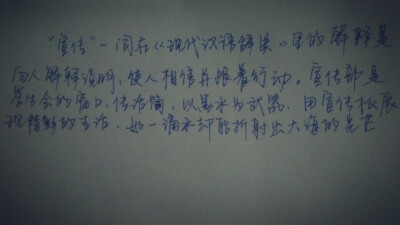 “宣传”一词在《现代汉语辞典》里的解释是
向人解释说明，使人相信并跟着行动。宣传部是
学生会的窗口，传话筒，以墨水为武器，用宣传板展
现精彩的生活，如一滴水却能折射出大海的光芒